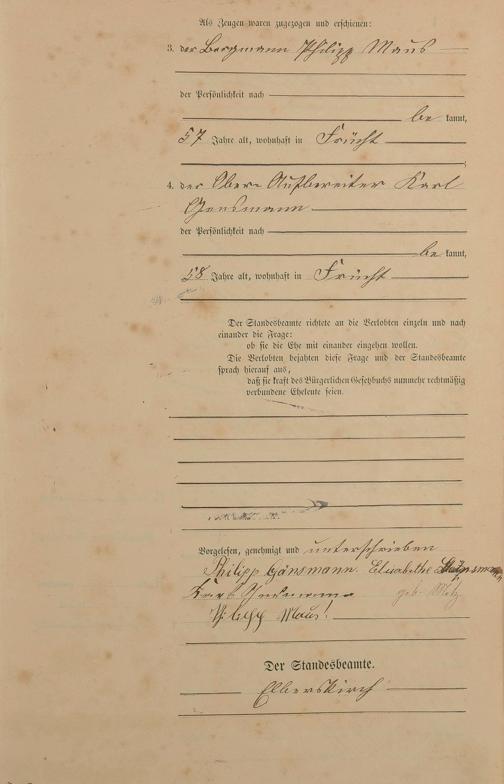 Als Zeugen waren zugezogen und erschienen:
3. der Bergmann Philipp Maus
der Persönlichkeit nach
be kannt,
57 Jahre alt, wohnhaft in Frücht
;
4. der Ober-Aufbereiter Karl
Gänsmann
der Persönlichkeit nach
be kannt,
58 Jahre alt, wohnhaft in Frücht
Der Standesbeamte richtete an die Verlobten einzeln und nach
einander die Frage:
ob sie die Ehe mit einander eingehen wollen.
Die Verlobten bejahten diese Frage und der Standesbeamte
sprach hierauf aus,
daß sie kraft des Bürgerlichen Gesetzbuchs nunmehr rechtmäßig
verbundene Eheleute seien.
Vorgelesen, genehmigt und unterschrieben
Philipp Gänsmann. Elisabethe
Karl Gänsmann geb. Metz
Philipp Maus!
Der Standesbeamte.
Elberskirch